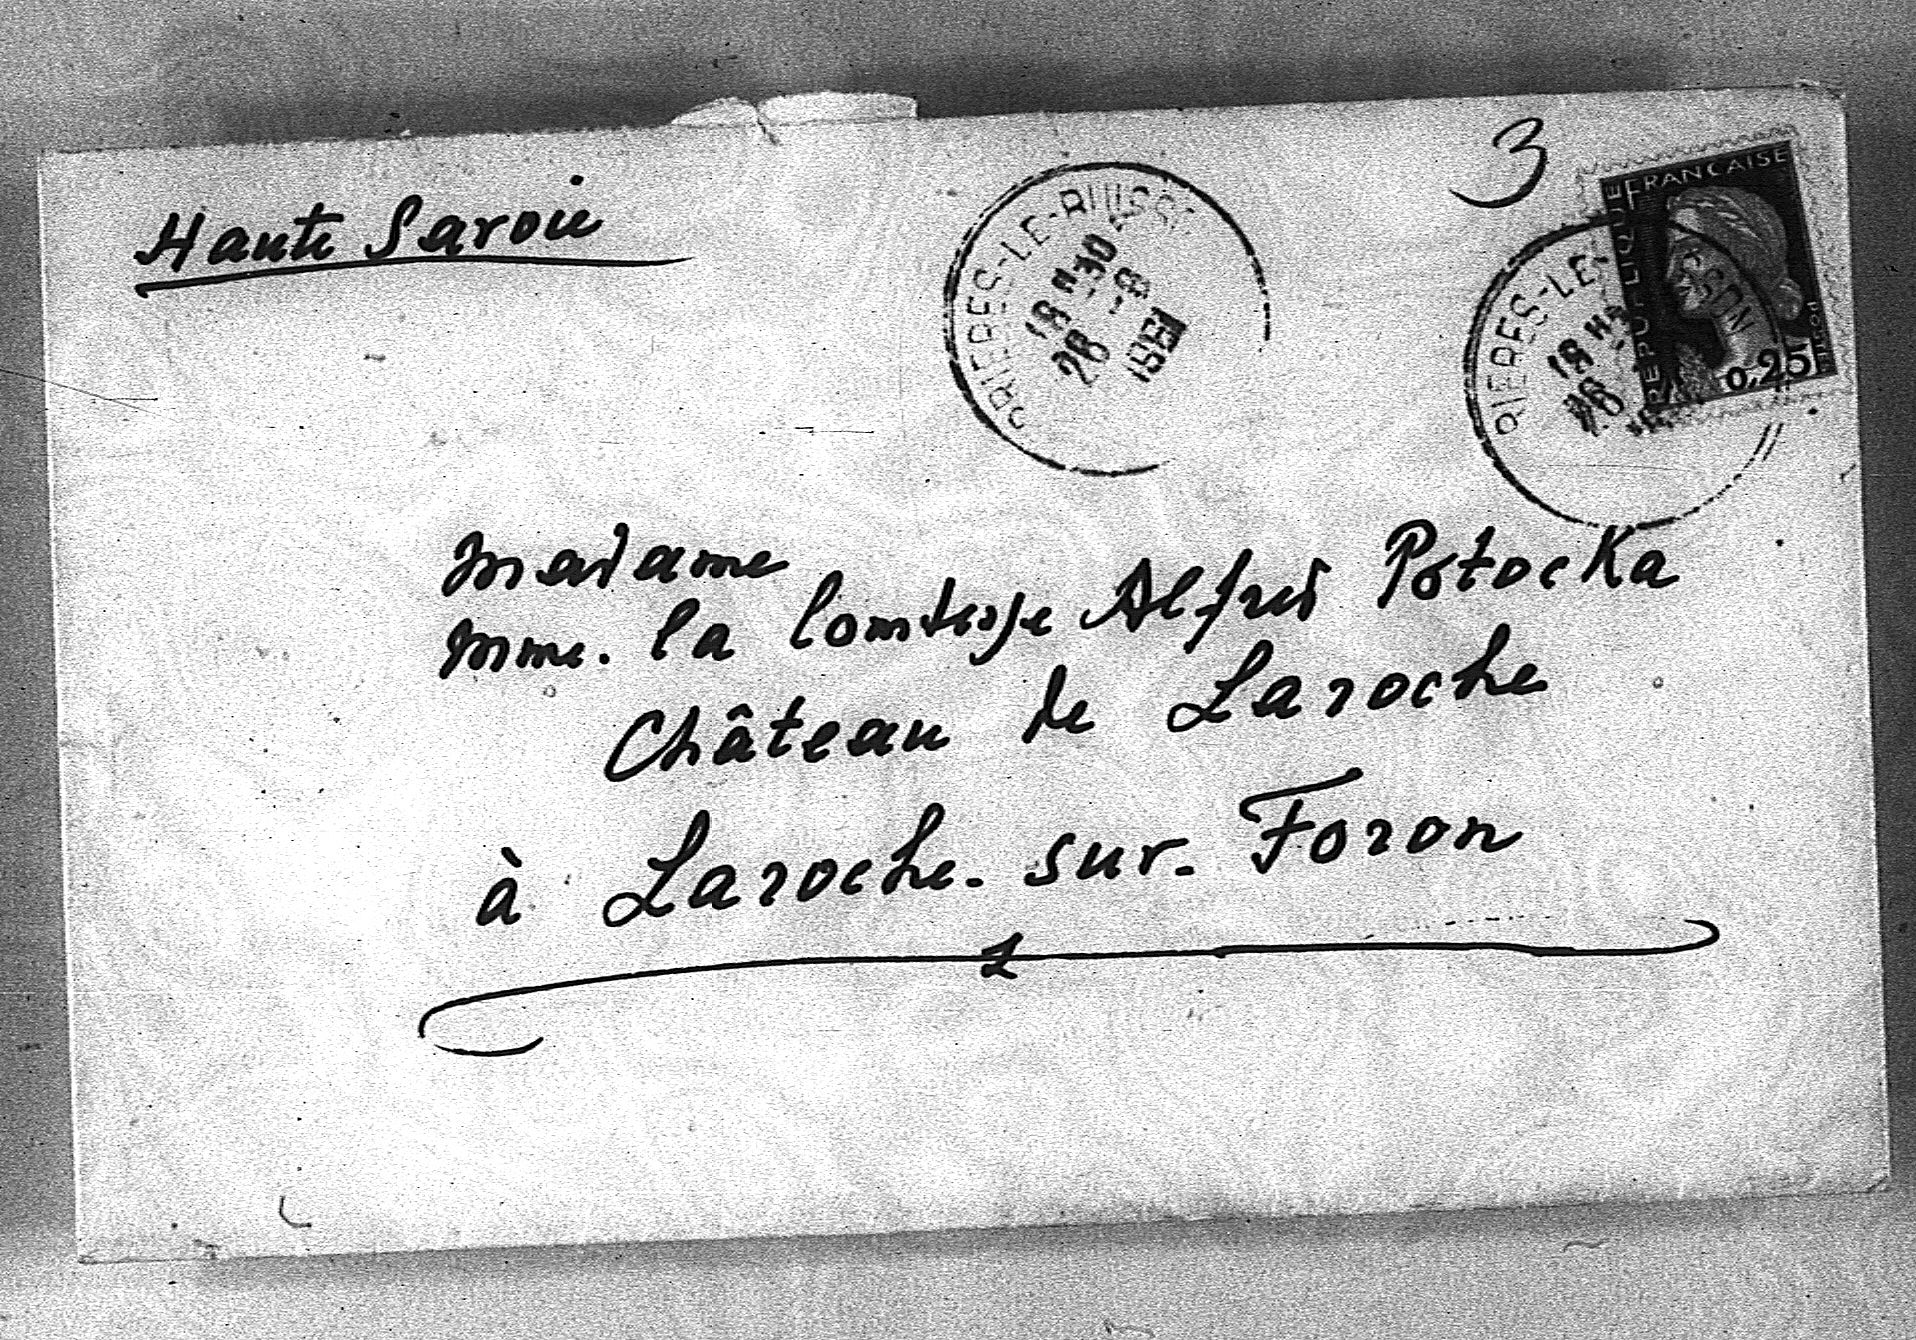 Haute Savoie
3
REPUBLIQUE FRANCAISE
0,25
RIERES-LE-BUISSON
18 H 30
28 -8
1961
RIERES-LE- SSON
18 H
28
Madame
Mme. la Comtesse Alfred Potocka
Château de Laroche
à Laroche-sur-Foron